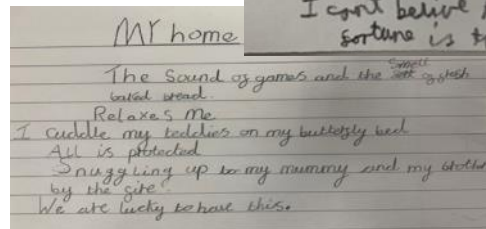 MY home
I cant belive
fortune is
The Sound of games and the Smell of fresh
baked bread.
Relaxes me
I cuddle my teddies on my butterfly bed
All is protected
Snuggling up to my mummy and my brother
by the fire.
We are lucky to have this.